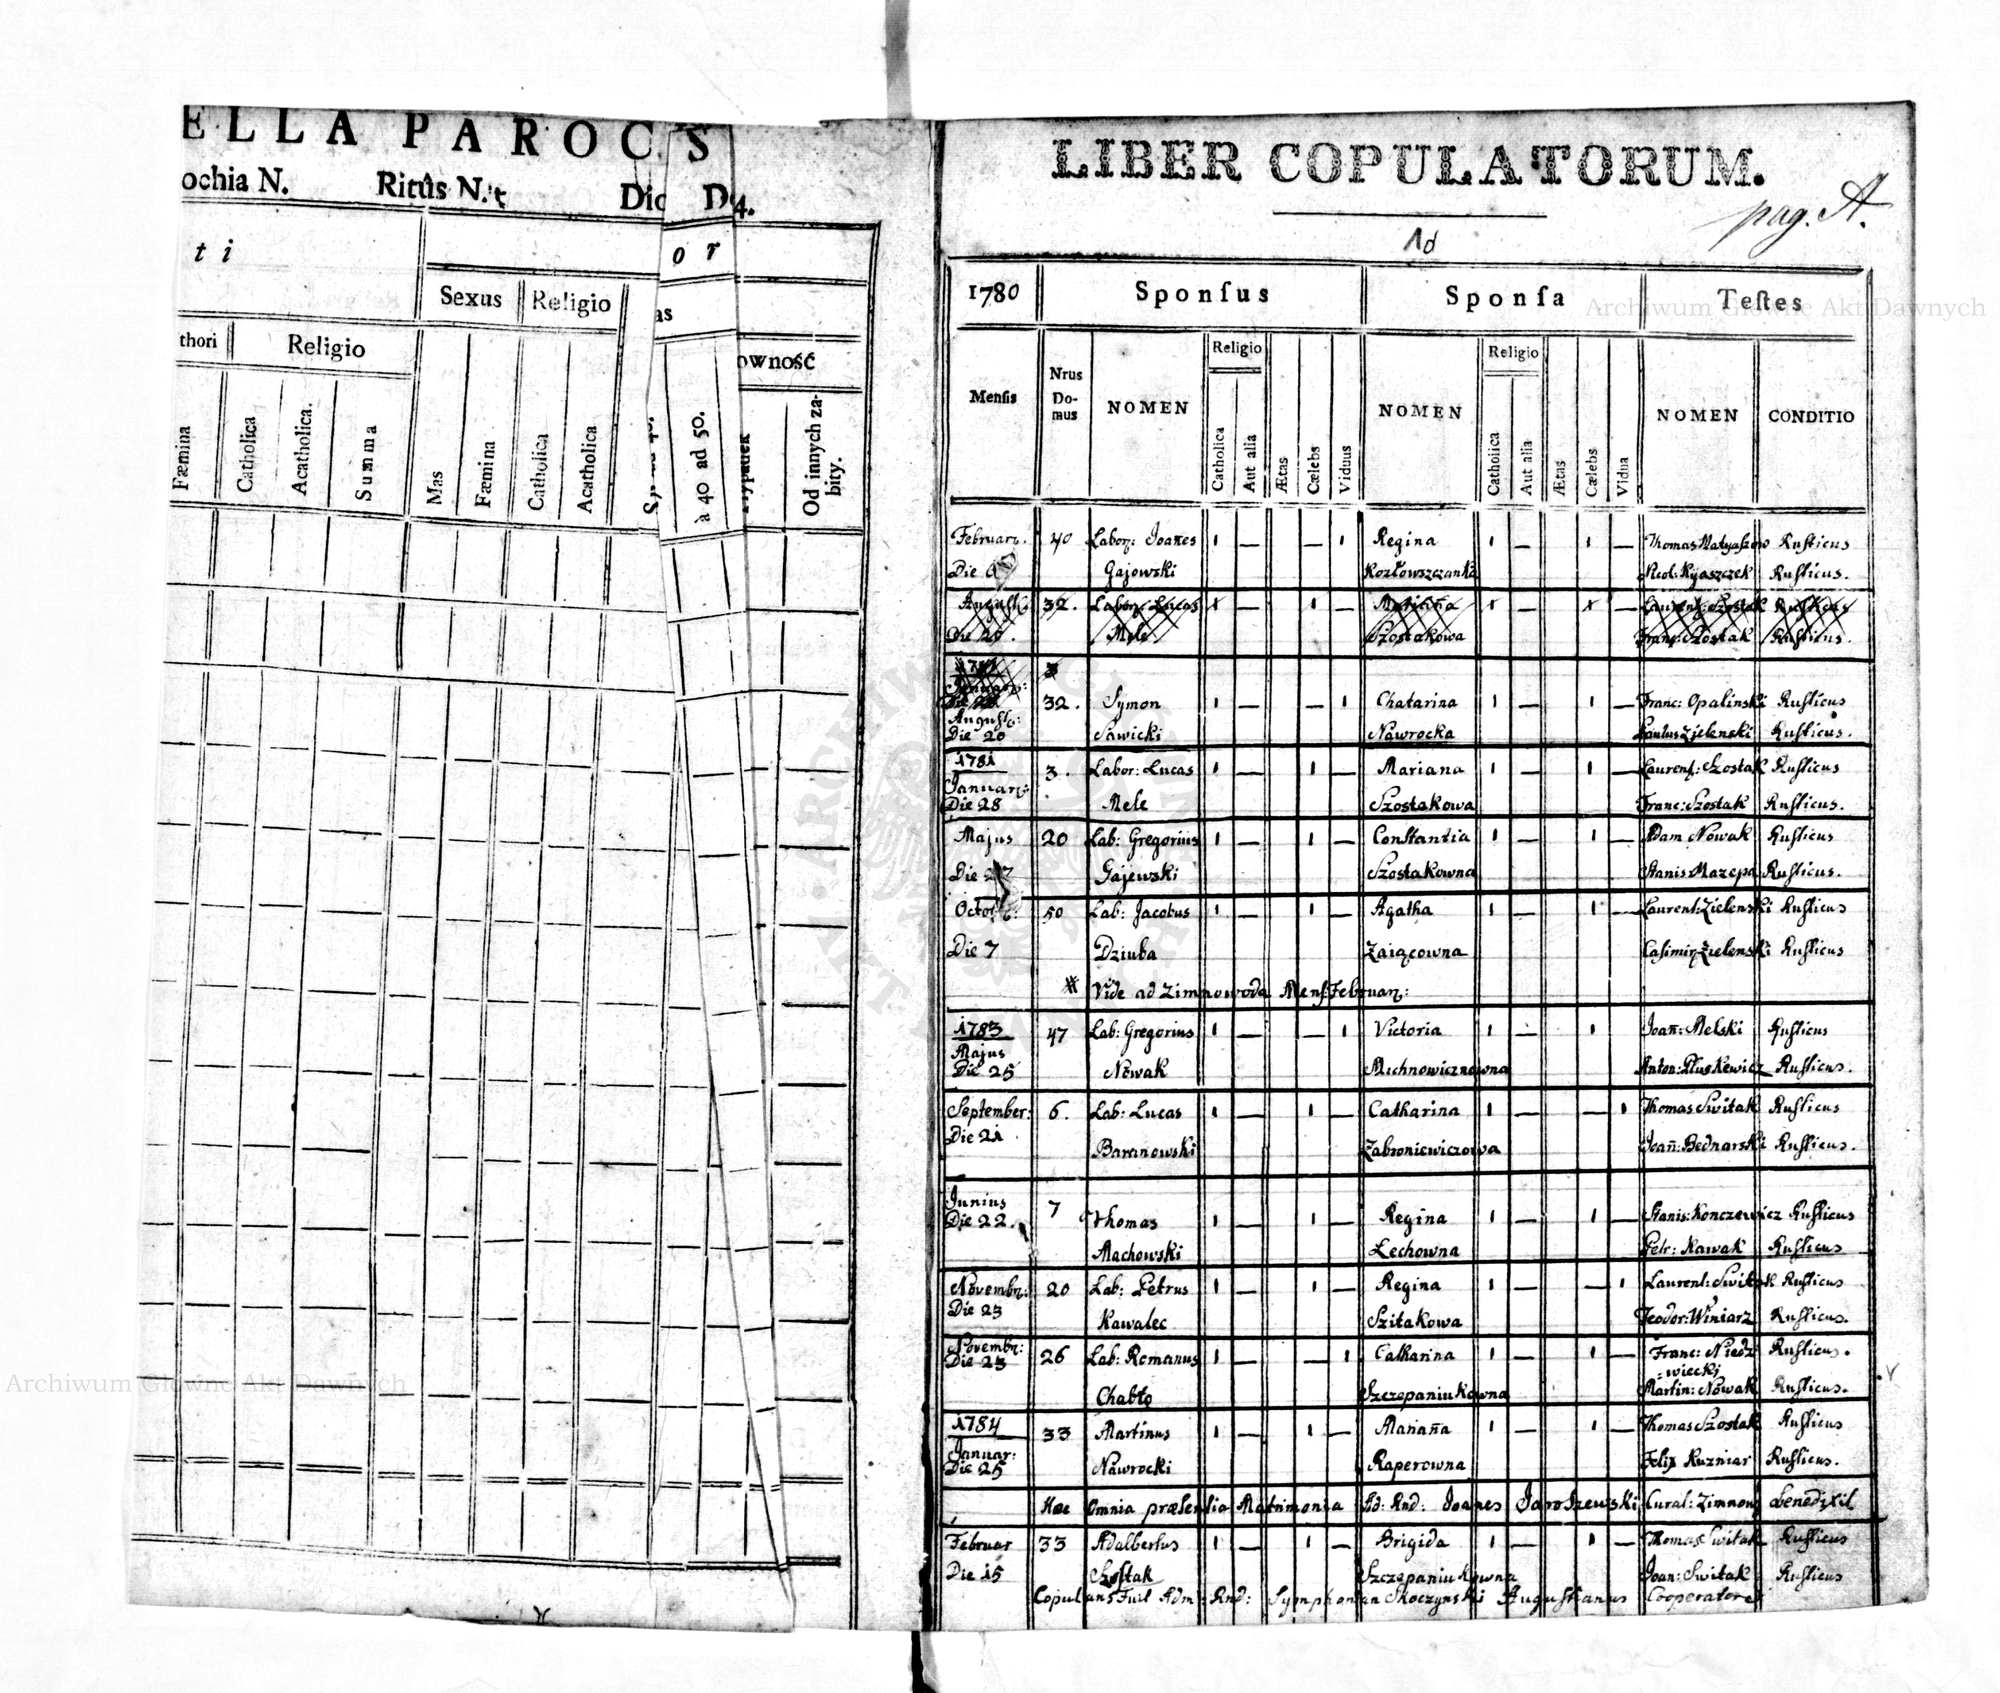 ELLA PAROC S
ochia N. Ritûs N. Dio D 4.
t i o r
Sexus Religio as
thori Religio owność
Fæmina Catholica Acatholica. Summa Mas Fæmina Catholica Acatholica à 40 ad 50. Od innych zabity.
LIBER COPULATORUM.
pag. A.
1780 Sponſus Sponſa Teſtes
Menſis Nrus Domus NOMEN Religio Catholica Aut alia Ætas Cælebs Viduus NOMEN Religio Catholica Aut alia Ætas Cælebs Vidua NOMEN CONDITIO
Februar. 40 Labor: Joanes 1 — 1 Regina 1 — 1 — Thomas Matyaszow Rusticus
Die 6 Gajowski Kozłowszczanka Nicol: Kyaszczek Rusticus.
August. 32. Labor: Lucas 1 — 1 — Marianna 1 — 1 — Laurent: Szostak Rusticus
Die 20. Mele Szostakowa Franc: Szostak Rusticus.
32. Symon 1 — — 1 Chatarina 1 — 1 — Franc: Opalinski Rusticus
August:
Die 20 Sawicki Nawrocka Paulus Zjelenski Rusticus.
1781
3. Labor: Lucas 1 — 1 — Mariana 1 — 1 — Laurent: Szostak Rusticus
Januar:
Die 28 Mele Szostakowa Franc: Szostak Rusticus.
Majus 20 Lab: Gregorius 1 — 1 — Constantia 1 — 1 — Adam Nowak Rusticus
Die 27 Gajewski Szostakowna Stanis: Mazepa Rusticus.
Octob: 50 Lab: Jacobus 1 — 1 — Agatha 1 — 1 — Laurent: Zielenski Rusticus
Die 7 Dziuba Zaiącowna Casimir: Zielenski Rusticus
# Vide ad Zimnowoda Mens: Februar:
1783 47 Lab: Gregorius 1 — — 1 Victoria 1 — 1 Joan: Melski Rusticus
Majus
Die 25 Nowak Michnowicznowna Anton: Pluskewicz Rusticus.
September: 6. Lab: Lucas 1 — 1 — Catharina 1 — — 1 Thomas Switak Rusticus
Die 21 Baranowski Zabroniewiczowa Joan: Bednarski Rusticus.
Junius
Die 22. 7 Thomas 1 — 1 — Regina 1 — 1 — Stanis: Konczewicz Rusticus
Machowski Lechowna Petr: Kawak Rusticus
Novembr: 20 Lab: Petrus 1 — 1 — Regina 1 — — 1 Laurent: Switak Rusticus
Die 23 Kawalec Szitakowa Teodor: Winiarz Rusticus.
Novembr:
Die 23 26 Lab: Romanus 1 — — 1 Catharina 1 — 1 — Franc: Niedz Rusticus.
wiecki
Chabło Szczepaniukowna Martin: Nowak Rusticus.
1784 33 Martinus 1 — 1 — Mariana 1 — 1 — Thomas Szostak Rusticus
Januar:
Die 25 Nawrocki Raperowna Felix Kuzniar Rusticus.
Hæc Omnia præsentia Matrimonia Ad: Rnd: Joanes Jaroszewski Curat: Zimnow benedixit
Februar 33 Adalbertus 1 — 1 — Brigida 1 — 1 — Thomas Switak Rusticus
Die 15 Szostak Szczepaniukowna Joan: Switak Rusticus
Copulans Fuit Adm: Rnd: Symphorian Skoczynski Augustianus Cooperator
Archiwum Główne Akt Dawnych
Archiwum Główne Akt Dawnych